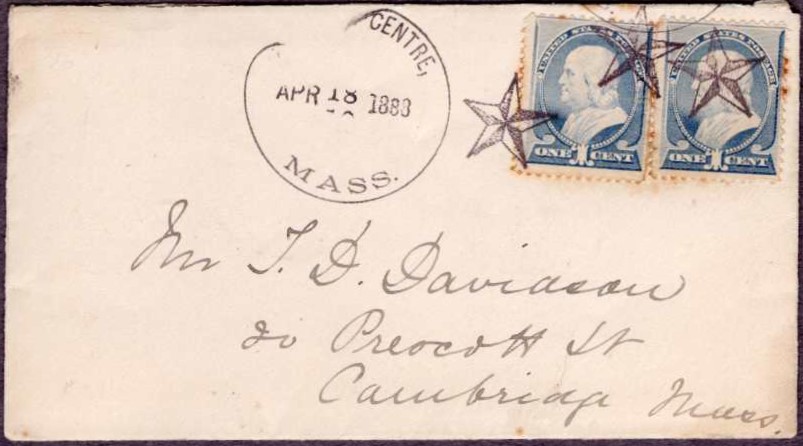 CENTRE,
APR 18 1888
MASS.
UNITED STATES POSTAGE
ONE 1 CENT
UNITED STATES POSTAGE
ONE 1 CENT
Mr T. D. Davidson
20 Prescott St
Cambridge Mass.